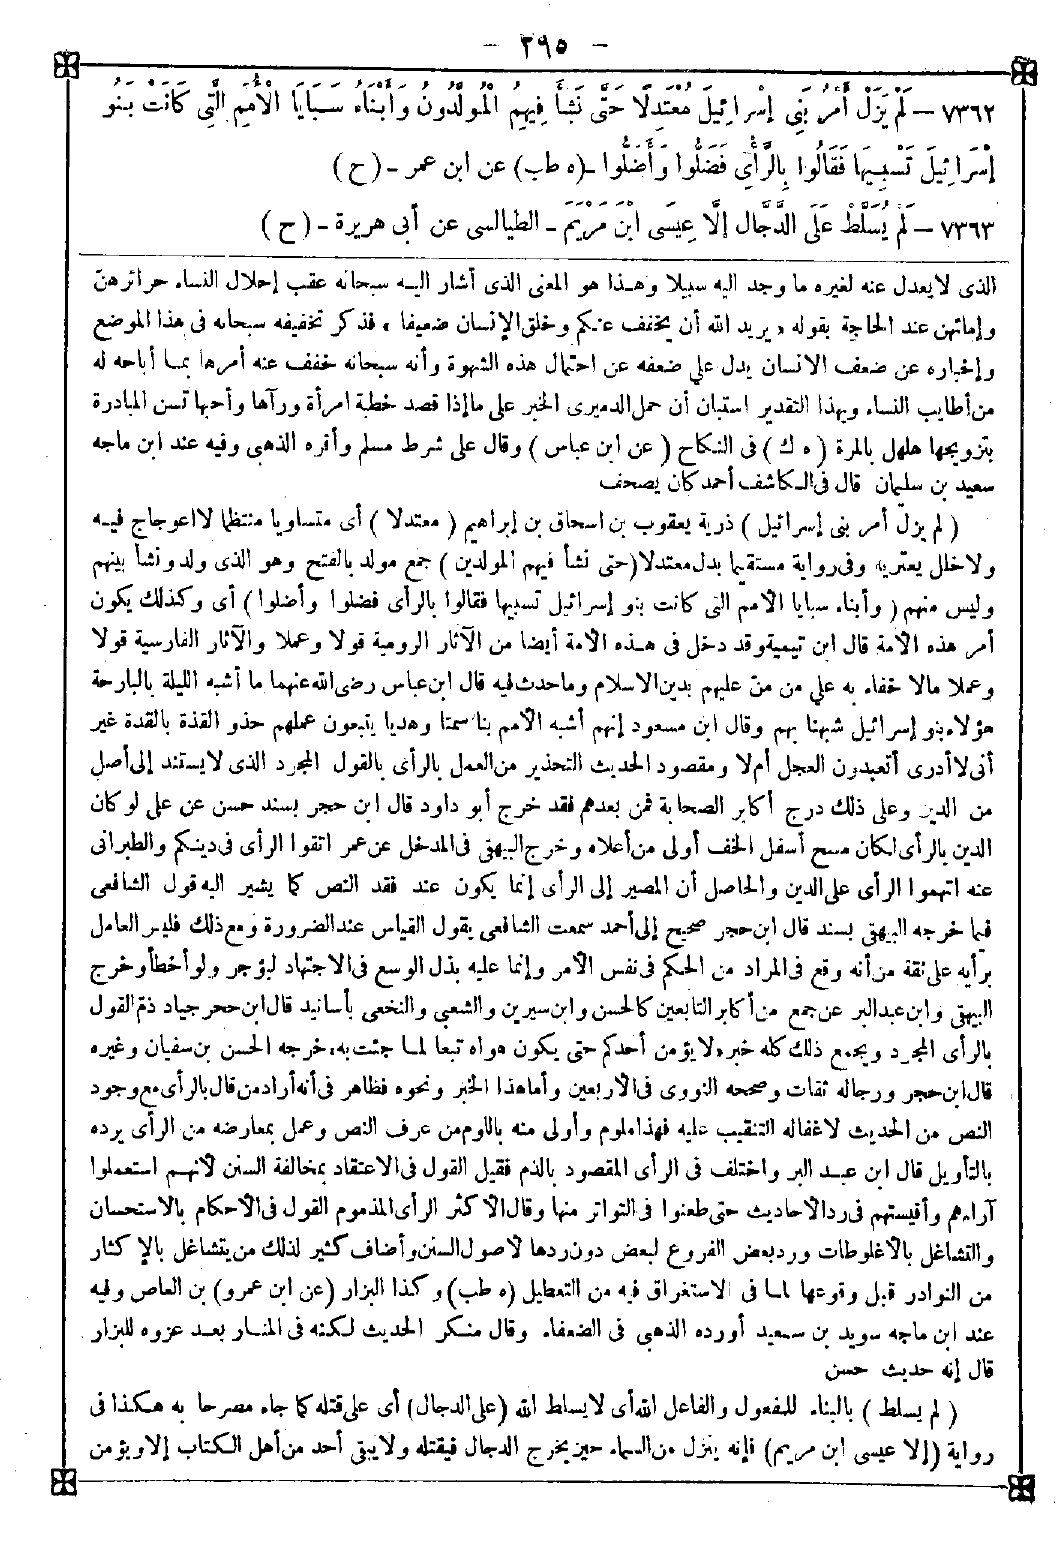 - ٢٩٥ -
٧٣٦٢ - لَمْ يَزَلْ أَمْرُ بَنِي إِسْرَائِيلَ مُعْتَدِلًا حَتَّى نَشَأَ فِيهِمُ الْمُوَلَّدُونَ وَأَبْنَاءُ سَبَايَا الْأُمَمِ الَّتِي كَانَتْ بَنُو
إِسْرَائِيلَ تَسْبِيهَا فَقَالُوا بِالرَّأْيِ فَضَلُّوا وَأَضَلُّوا - (ه طب) عن ابن عمر - (ح)
٧٣٦٣ - لَمْ يُسَلَّطْ عَلَى الدَّجَّالِ إِلَّا عِيسَى ابْنُ مَرْيَمَ - الطيالسى عن أبى هريرة - (ح)
الذى لا يعدل عنه لغيره ما وجد اليه سبيلا وهذا هو المعنى الذى أشار اليه سبحانه عقب إحلال النساء حرائرهن
وإمائهن عند الحاجة بقوله «يريد الله أن يخفف عنكم وخلق الإنسان ضعيفا» فذكر تخفيفه سبحانه فى هذا الموضع
وإخباره عن ضعف الانسان يدل على ضعفه عن احتمال هذه الشهوة وأنه سبحانه خفف عنه أمرها بما أباحه له
من أطايب النساء وبهذا التقدير استبان أن حمل الدميرى الخبر على ما إذا قصد خطبة امرأة ورآها وأحبها تسن المبادرة
بتزويجها هلهل بالمرة (ه ك) فى النكاح (عن ابن عباس) وقال على شرط مسلم وأقره الذهبى وفيه عند ابن ماجه
سعيد بن سليمان قال فى الكاشف أحمد كان يصحف
(لم يزل أمر بنى إسرائيل) ذرية يعقوب بن اسحاق بن إبراهيم (معتدلا) أى متساويا منتظما لا اعوجاج فيه
ولا خلل يعتريه وفى رواية مستقيما بدل معتدلا (حتى نشأ فيهم المولدين) جمع مولد بالفتح وهو الذى ولد ونشأ بينهم
وليس منهم (وأبناء سبايا الأمم التى كانت بنو إسرائيل تسبيها فقالوا بالرأى فضلوا وأضلوا) أى وكذلك يكون
أمر هذه الأمة قال ابن تيمية وقد دخل فى هذه الأمة أيضا من الآثار الرومية قولا وعملا والآثار الفارسية قولا
وعملا مالا خفاء به على من منّ عليهم بدين الاسلام وما حدث فيه قال ابن عباس رضى الله عنهما ما أشبه الليلة بالبارحة
هؤلاء بنو إسرائيل شبهنا بهم وقال ابن مسعود إنهم أشبه الأمم بنا سمتا وهديا يتبعون عملهم حذو القذة بالقذة غير
أنى لا أدرى أتعبدون العجل أم لا ومقصود الحديث التحذير من العمل بالرأى بالقول المجرد الذى لا يستند إلى أصل
من الدين وعلى ذلك درج أكابر الصحابة فمن بعدهم فقد خرج أبو داود قال ابن حجر بسند حسن عن على لو كان
الدين بالرأى لكان مسح أسفل الخف أولى من أعلاه وخرج البيهقى فى المدخل عن عمر اتقوا الرأى فى دينكم والطبرانى
عنه اتهموا الرأى على الدين والحاصل أن المصير إلى الرأى إنما يكون عند فقد النص كما يشير اليه قول الشافعى
فيما خرجه البيهقى بسند قال ابن حجر صحيح إلى أحمد سمعت الشافعى يقول القياس عند الضرورة ومع ذلك فليس العامل
برأيه على ثقة من أنه وقع فى المراد من الحكم فى نفس الأمر وإنما عليه بذل الوسع فى الاجتهاد ليؤجر ولو أخطأ وخرج
البيهقى وابن عبد البر عن جمع من أكابر التابعين كالحسن وابن سيرين والشعبى والنخعى بأسانيد قال ابن حجر جياد ذم القول
بالرأى المجرد ويجمع ذلك كله خبر «لا يؤمن أحدكم حتى يكون هواه تبعا لما جئت به» خرجه الحسن بن سفيان وغيره
قال ابن حجر ورجاله ثقات وصححه النووى فى الأربعين وأما هذا الخبر ونحوه فظاهر فى أنه أراد من قال بالرأى مع وجود
النص من الحديث لاغفاله التنقيب عليه فهذا ملوم وأولى منه باللوم من عرف النص وعمل بمعارضه من الرأى يرده
بالتأويل قال ابن عبد البر واختلف فى الرأى المقصود بالذم فقيل القول فى الاعتقاد بمخالفة السنن لأنهم استعملوا
آراءهم وأقيستهم فى رد الأحاديث حتى طعنوا فى التواتر منها وقال الأكثر الرأى المذموم القول فى الأحكام بالاستحسان
والتشاغل بالأغلوطات ورد بعض الفروع لبعض دون ردها لأصول السنن وأضاف كثير لذلك من يتشاغل بالإكثار
من النوادر قبل وقوعها لما فى الاستغراق فيه من التعطيل (ه طب) وكذا البزار (عن ابن عمرو) بن العاص وفيه
عند ابن ماجه سويد بن سعيد أورده الذهبى فى الضعفاء وقال منكر الحديث لكنه فى المنار بعد عزوه للبزار
قال إنه حديث حسن
(لم يسلط) بالبناء للمفعول والفاعل الله أى لا يسلط الله (على الدجال) أى على قتله كما جاء مصرحا به هكذا فى
رواية (إلا عيسى ابن مريم) فإنه ينزل من السماء حين يخرج الدجال فيقتله ولا يبقى أحد من أهل الكتاب إلا ويؤمن